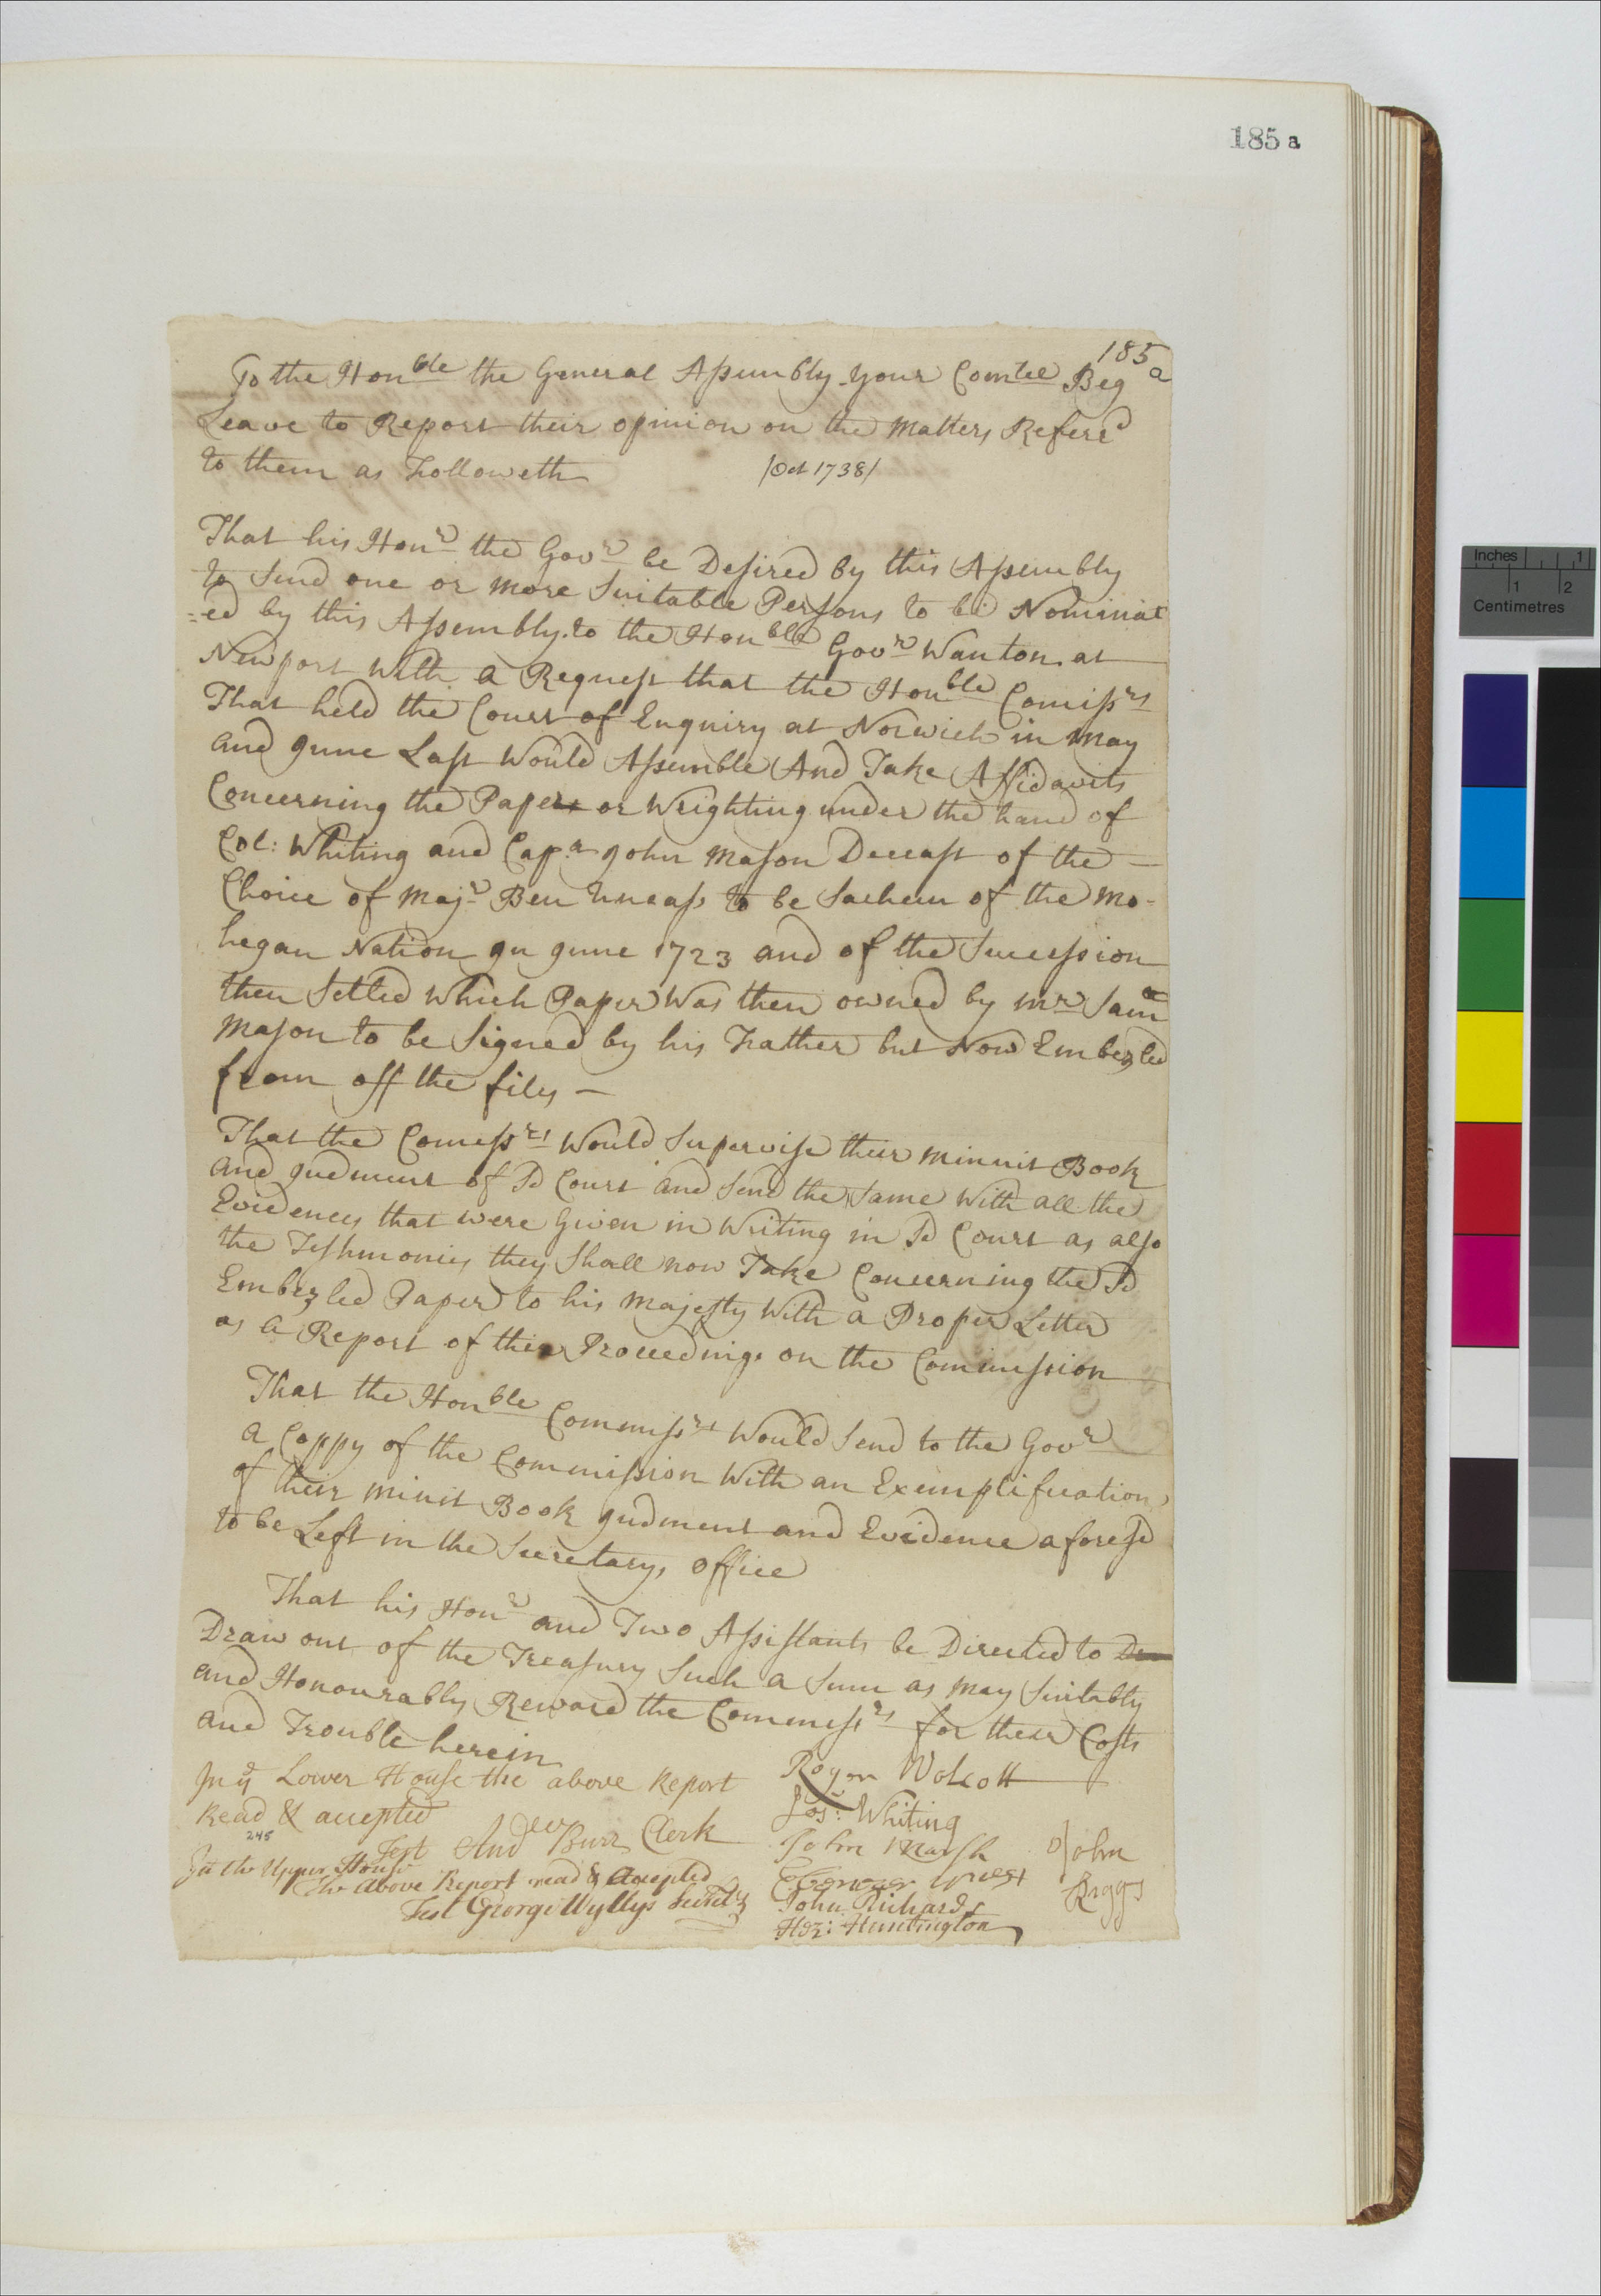 185 a
185
a
To the Honble the General Assembly Your Comtee Beg
Leave to Report their opinion on the Matters Refered
to them as Followeth
/Oct 1738/
That his Honr the Govr be Desired by this Assembly
to Send one or more Suitable Persons to be Nominat
=ed by this Assembly to the Honble Govr Wanton at
Newport With a Request that the Honble Comissrs
That held the Court of Enquiry at Norwich in May
and June Last Would Assemble And Take Affidavits
Concerning the Paper or Wrighting under the hand of
Col: Whiting and Capa John Mason Deceast of the
Choice of Majr Ben Uncass to be Sachem of the Mo-
hegan Nation In June 1723 and of the Succession
then Setled Which Paper Was then owned by Mr Sam
Mason to be Signed by his Father but Now Embezled
from off the files —
That the Comessrs Would Supervise their Minnit Book
and Judment of Sd Court and Send the Same With all the
Evidences that were Given in Writing in Sd Court as also
the Testimonies they Shall now Take Concerning the Sd
Embezled Paper to his Majesty With a Proper Letter
as a Report of their Proceedings on the Commission
That the Honble Commissrs Would Send to the Govr
a Coppy of the Commission With an Exemplification
of their Minit Book Judment and Evidence aforesd
to be Left in the Secretarys office
That his Honr and Two Assistants be Directed to Dr
Draw out of the Treasury Such a Sum as May Suitably
and Honourably Reward the Commessrs for their Costs
and Trouble herein
Roger Wolcott
Jos: Whiting
John Marsh
Ebenezer West
John Richards
Hez: Huntington
John
Riggs
In ye Lower House the above Report
Read & accepted
Test Andew Burr Clerk
245
In the Upper House
The Above Report read & Accepted
Test George Wyllys Secrety
Inches 1
1 2
Centimetres